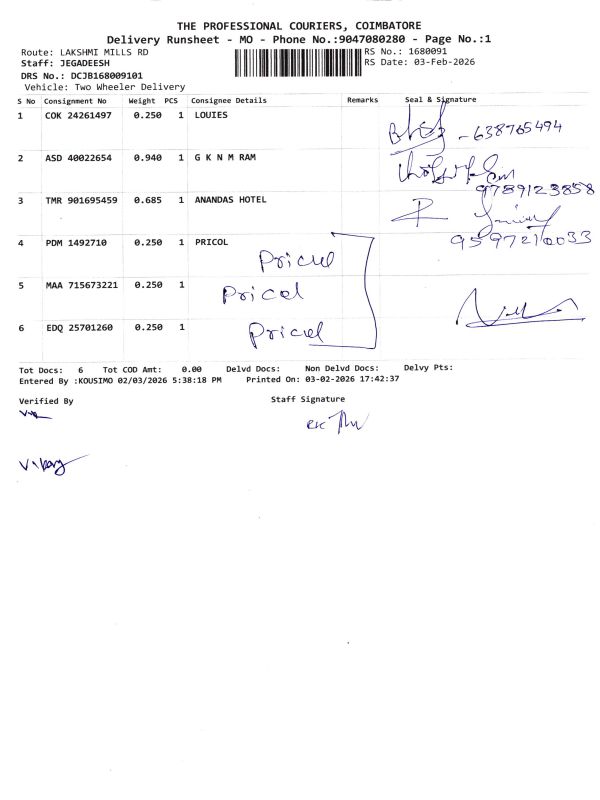 THE PROFESSIONAL COURIERS, COIMBATORE
Delivery Runsheet - MO - Phone No.:9047080280 - Page No.:1
Route: LAKSHMI MILLS RD RS No.: 1680091
Staff: JEGADEESH RS Date: 03-Feb-2026
DRS No.: DCJB168009101
Vehicle: Two Wheeler Delivery
S No Consignment No Weight PCS Consignee Details Remarks Seal & Signature
1 COK 24261497 0.250 1 LOUIES
- 638765494
2 ASD 40022654 0.940 1 G K N M RAM
9789123858
3 TMR 901695459 0.685 1 ANANDAS HOTEL
4 PDM 1492710 0.250 1 PRICOL
Pricol
5 MAA 715673221 0.250 1
Pricol
6 EDQ 25701260 0.250 1
Pricol
Tot Docs: 6 Tot COD Amt: 0.00 Delvd Docs: Non Delvd Docs: Delvy Pts:
Entered By :KOUSIMO 02/03/2026 5:38:18 PM Printed On: 03-02-2026 17:42:37
Verified By Staff Signature